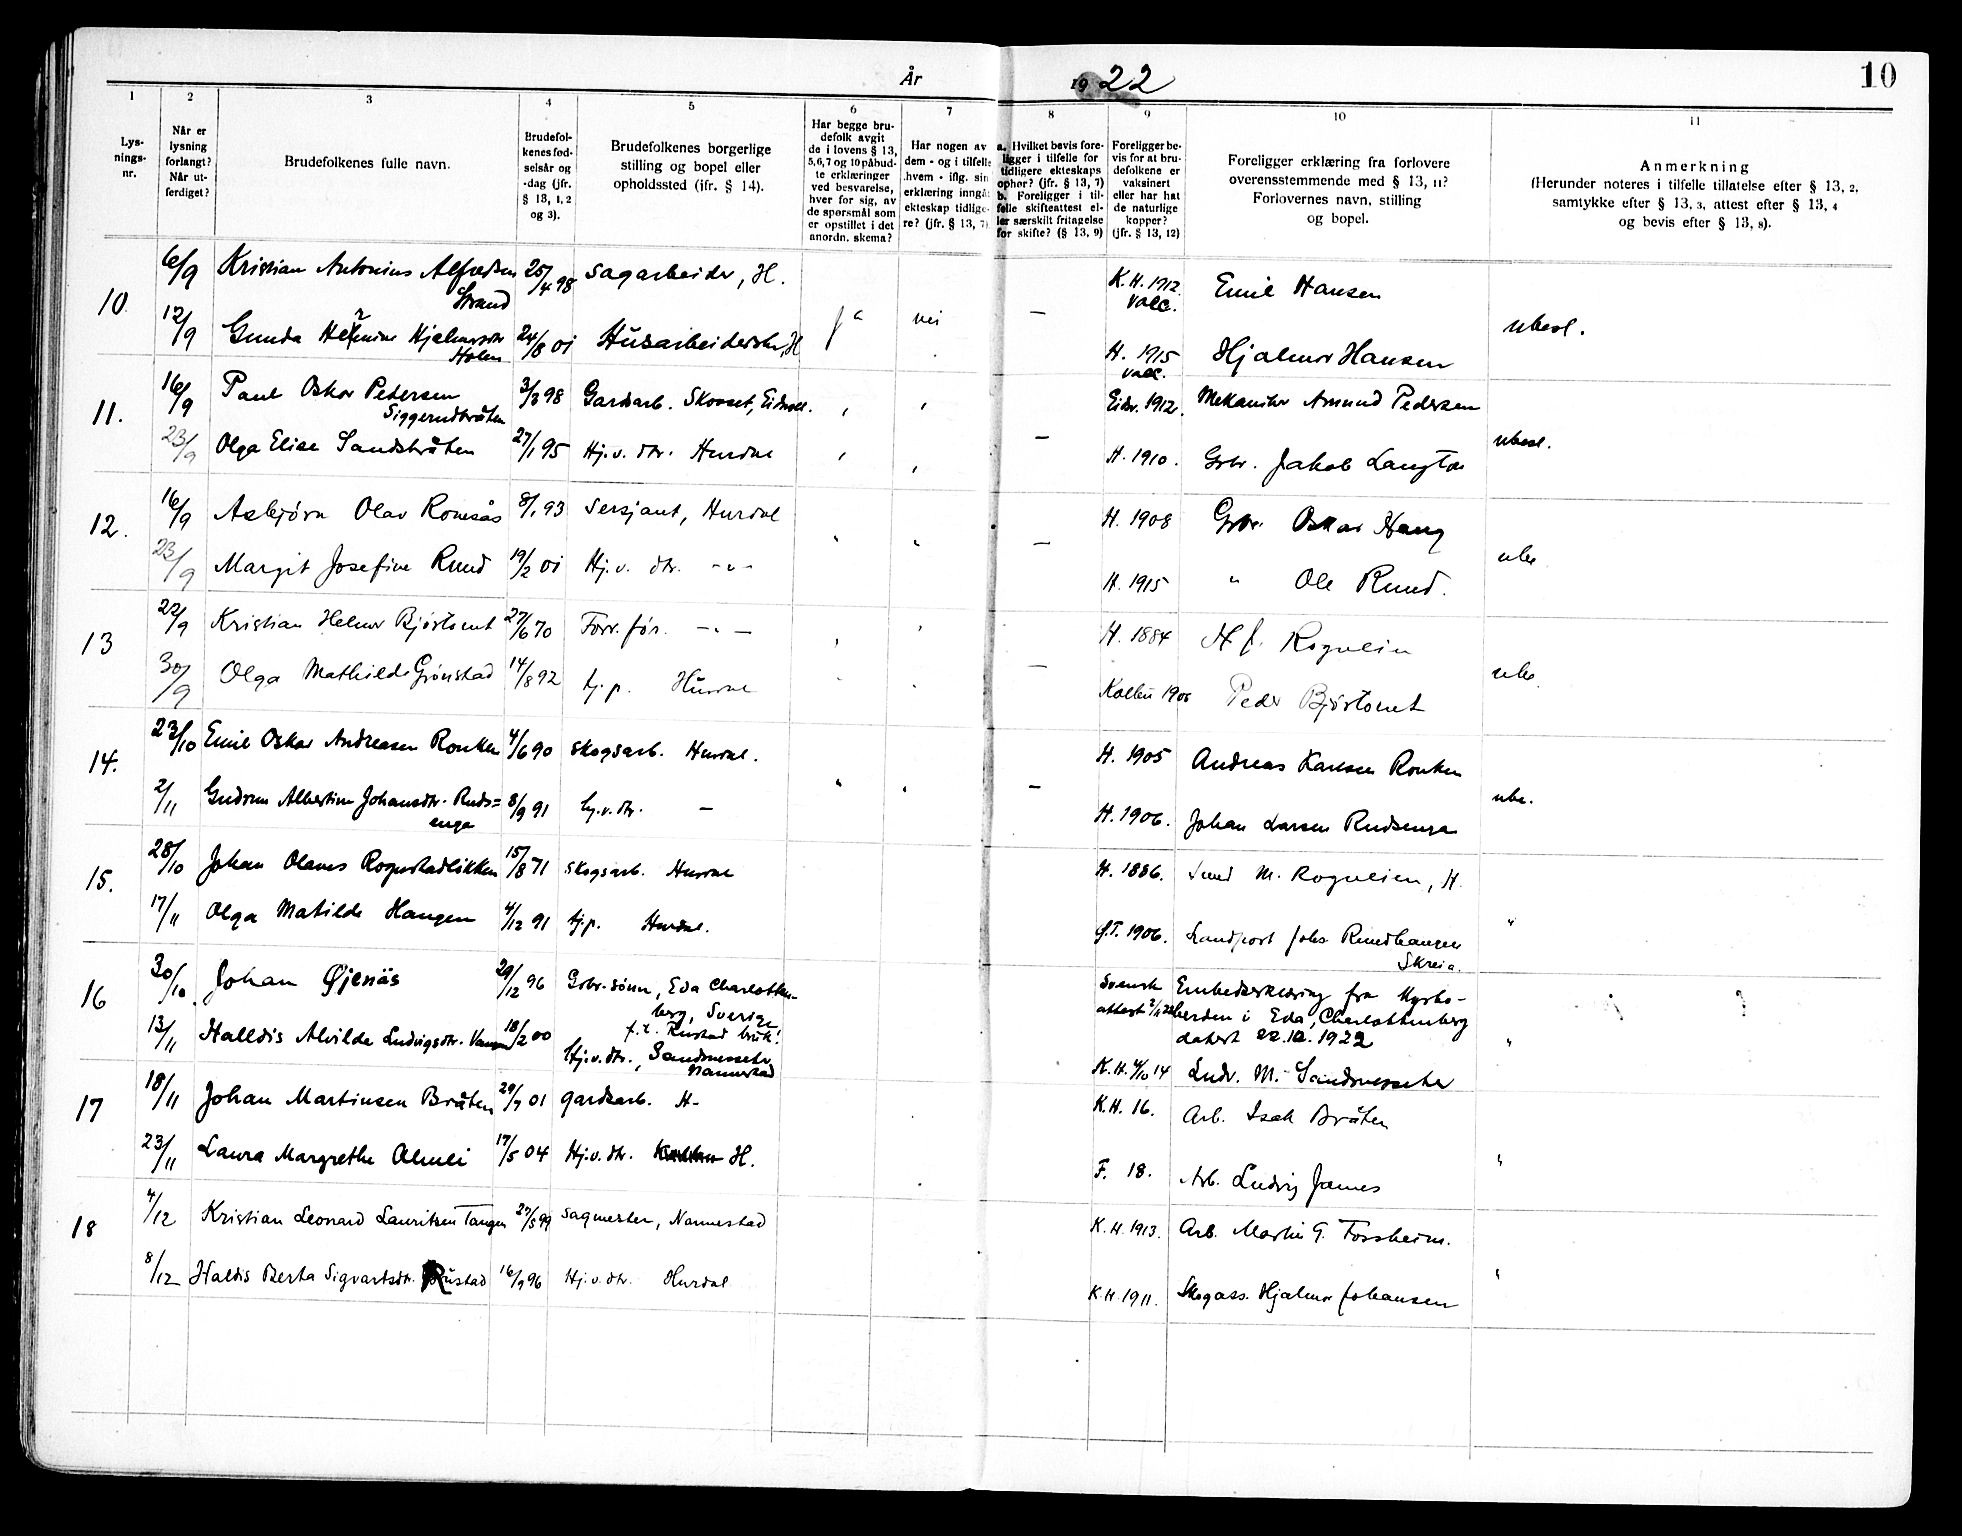 År 1922
10
1 2 3 4 5 6 7 8 9 10 11
Lys-
nings-
nr.
Når er
lysning
forlangt?
Når ut-
ferdiget?
Brudefolkenes fulle navn.
Brudefol-
kenes fød-
selsår og
-dag (jfr.
§ 13, 1, 2
og 3).
Brudefolkenes borgerlige
stilling og bopel eller
opholdssted (jfr. § 14).
Har begge bru-
defolk avgit
de i lovens § 13,
5,6,7 og 10 påbud-
te erklæringer
ved besvarelse,
hver for sig, av
de spørsmål som
er opstillet i det
anordn. skema?
Har nogen av
dem - og i tilfelle
hvem - iflg. sin
erklæring inngåt
ekteskap tidlige-
re? (jfr. § 13, 7)
a. Hvilket bevis fore-
ligger i tilfelle for
tidligere ekteskaps
ophør? (jfr. § 13, 7)
b. Foreligger i til-
felle skifteattest el-
ler særskilt fritagelse
for skifte? (§ 13, 9)
Foreligger be-
vis for at bru-
defolkene er
vaksinert
eller har hat
de naturlige
kopper?
(jfr. § 13, 12)
Foreligger erklæring fra forlovere
overensstemmende med § 13, 11?
Forlovernes navn, stilling
og bopel.
Anmerkning
(Herunder noteres i tilfelle tillatelse efter § 13, 2,
samtykke efter § 13, 3, attest efter § 13, 4
og bevis efter § 13, 8).
10. 6/9 Kristian Antonius Alfredsen Strand 25/4 98 sagarbeider, H. K.H. 1912. vacc. Emil Hansen
12/9 Gunda Hermine Hjalmarsdtr Holen 24/8 01 Husarbeiderske, H ja nei — H. 1915 vacc. Hjalmar Hansen ubesl.
11. 16/9 Paul Oskar Pedersen Siggerudbråten 3/3 98 Gardsarb. Skosset, Eidsvoll. Eidsv. 1912. Mekaniker Amund Pedersen
23/9 Olga Elise Sandsbråten 27/1 95 Hj.v. dtr. Hurdal — H. 1910. Gbr. Jakob Langton ubesl.
12. 16/9 Asbjørn Olav Romsås 8/1 93 Sersjant, Hurdal H. 1908 Gbr. Oskar Haug
23/9 Margit Josefine Ruud 19/2 01 Hj.v. dtr. -"- " " — H. 1915 " Ole Ruud. ube
13 22/9 Kristian Helmer Bjørtomt 27/6 70 Forr.før. -"- H. 1884 H. J. Rognlein
30/9 Olga Mathilde Grønstad 14/8 92 tj.p. Hurdal — Kolbu 1906 Peder Bjørtomt ube.
14. 23/10 Emil Oskar Andreasen Ronken 4/6 90 skogsarb. Hurdal. H. 1905 Andreas Karlsen Ronken
2/11 Gudrun Albertine Johansdtr. Ruds=enga 8/9 91 hj.v.dtr. — " " — H. 1906. Johan Larsen Rudsenga ube.
15. 28/10 Johan Olaves Rognstadlikken 15/8 71 skogsarb. Hurdal H. 1886. M. Rognlien, H.
17/11 Olga Matilde Haugen 4/12 91 tj.p. Hurdal. Ø.T. 1906. Landpost Johs. Rundhaugen Skreia. "
16 30/10 Johan Øjenäs 29/12 96 Gbr.sønn, Eda Charlotten-berg, Sverige f.t. Rustad bruk! Svensk attest Embedserklæring fra Kyrko-herden i Eda, Charlottenberg datert 22.10.1922
13/11 Halldis Alvilde Ludvigsdtr. 18/2 00 Hj.v.dtr., Sandsnesseter, Nannestad K.H. 4/10 14 Ludv. M. Sandsnesseter "
17 18/11 Johan Martinsen Bråten 29/7 01 gardsarb. H- K.H. 16. Arb. Isak Bråten
23/11 Laura Margrethe Almli 17/5 04 Hj.v.dtr. H. F. 18. Arb. Ludvig James "
18 4/12 Kristian Leonard Lauritsen Tangen 27/5 99 sagmester, Nannestad K.H. 1913. Arb. Martin G. Fossheim.
8/12 Haldis Berta Sigvartsdtr. Rustad 16/9 96 Hj.v.dtr. Hurdal K.H. 1911. Skogass. Hjalmar Johansen "